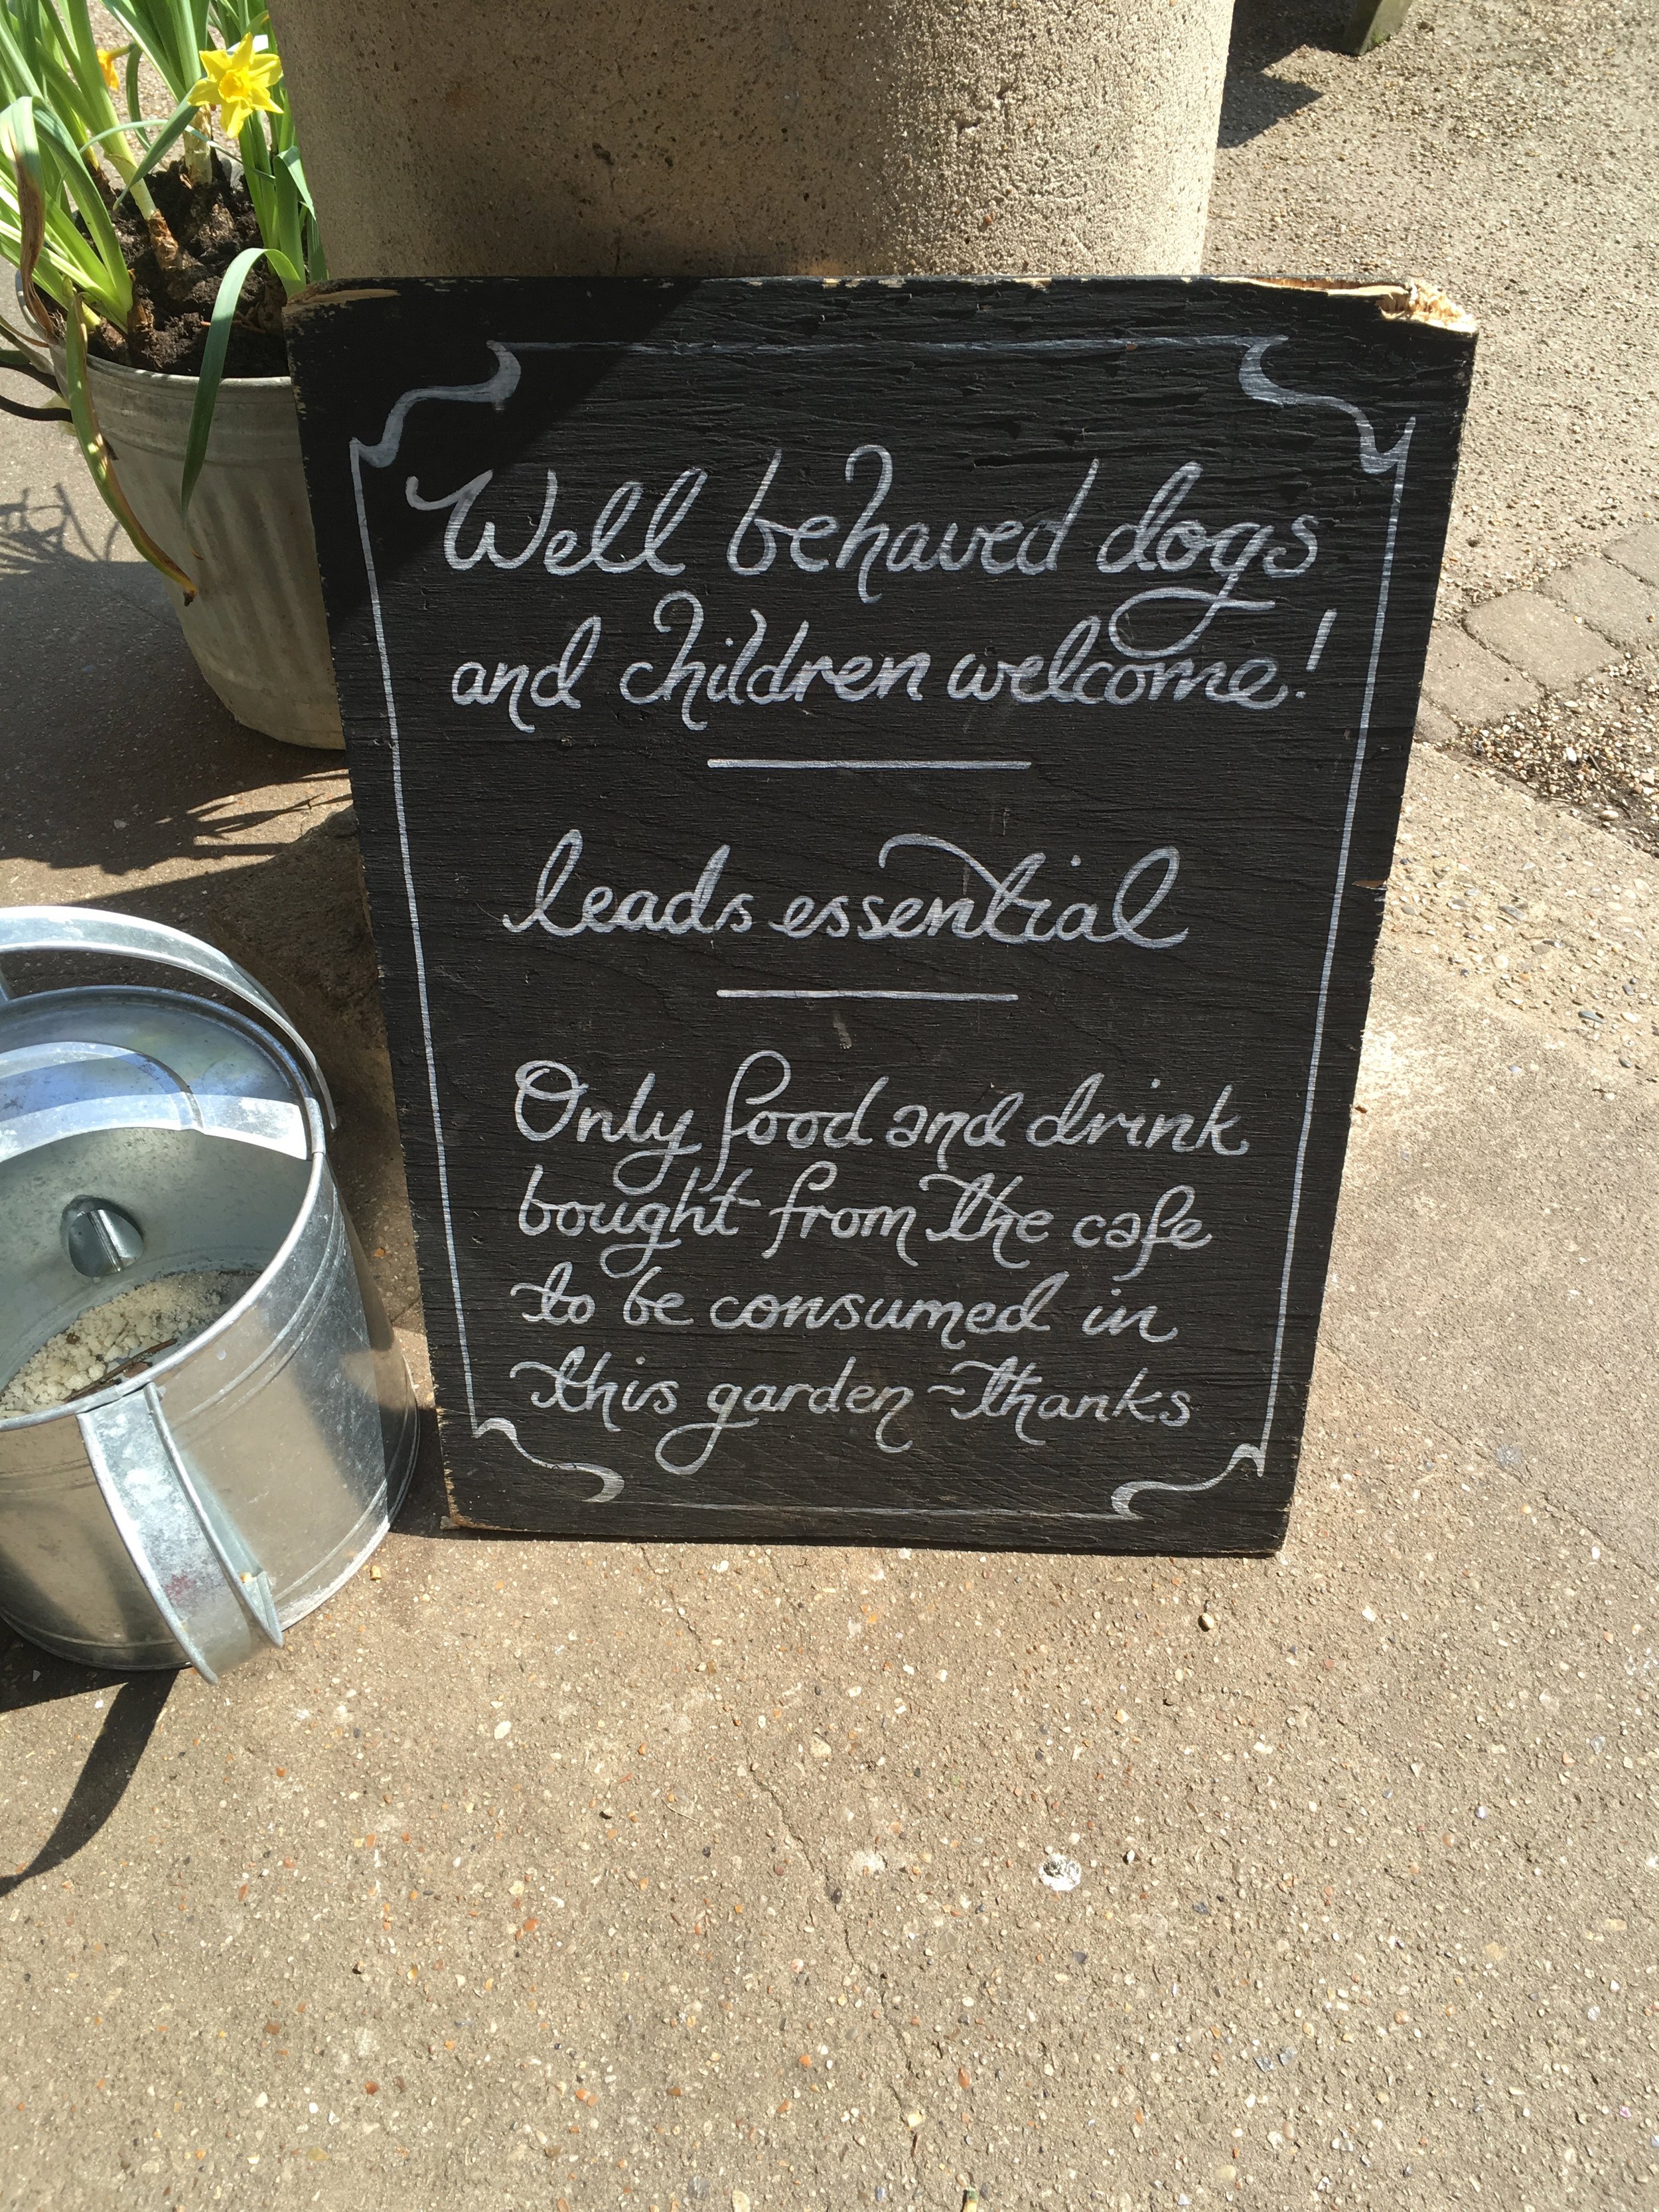 Well behaved dogs
and children welcome!
leads essential
Only food and drink
bought from the cafe
to be consumed in
this garden ~ thanks